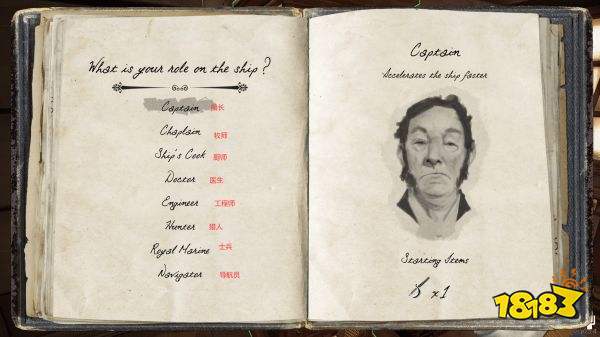 What is your role on the ship?
Captain 船长
Chaplain 牧师
Ship's Cook 厨师
Doctor 医生
Engineer 工程师
Hunter 猎人
Royal Marine 士兵
Navigator 导航员
Captain
Accelerates the ship faster
Starting Items
x1
18183